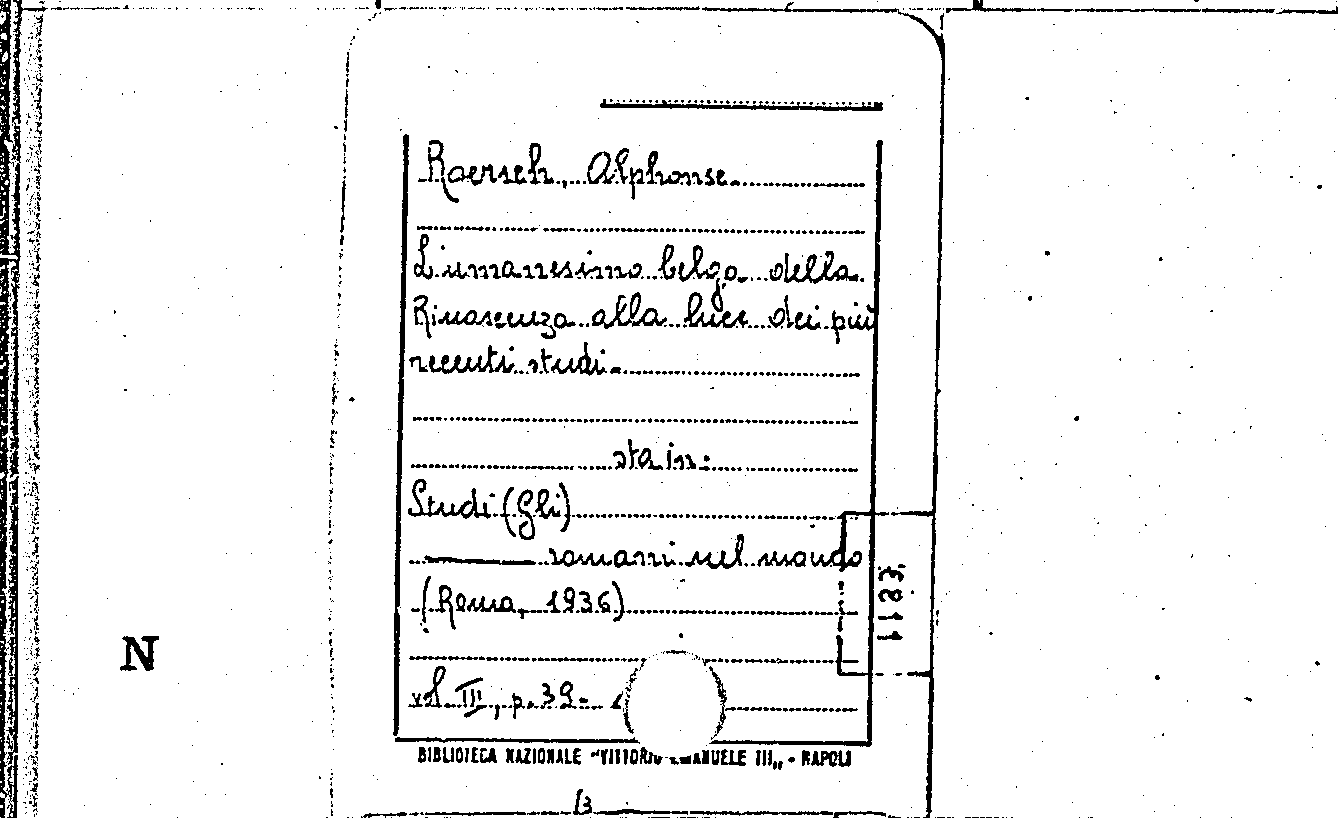 Roersch, Alphonse.
L'umanesimo belga della
Rinascenza alla luce dei più
recenti studi.
sta in:
Studi (Gli)
——— romani nel mondo
(Roma, 1936)
vol. III, p. 39-
BIBLIOTECA NAZIONALE "VITTORIO EMANUELE III„ - NAPOLI
N